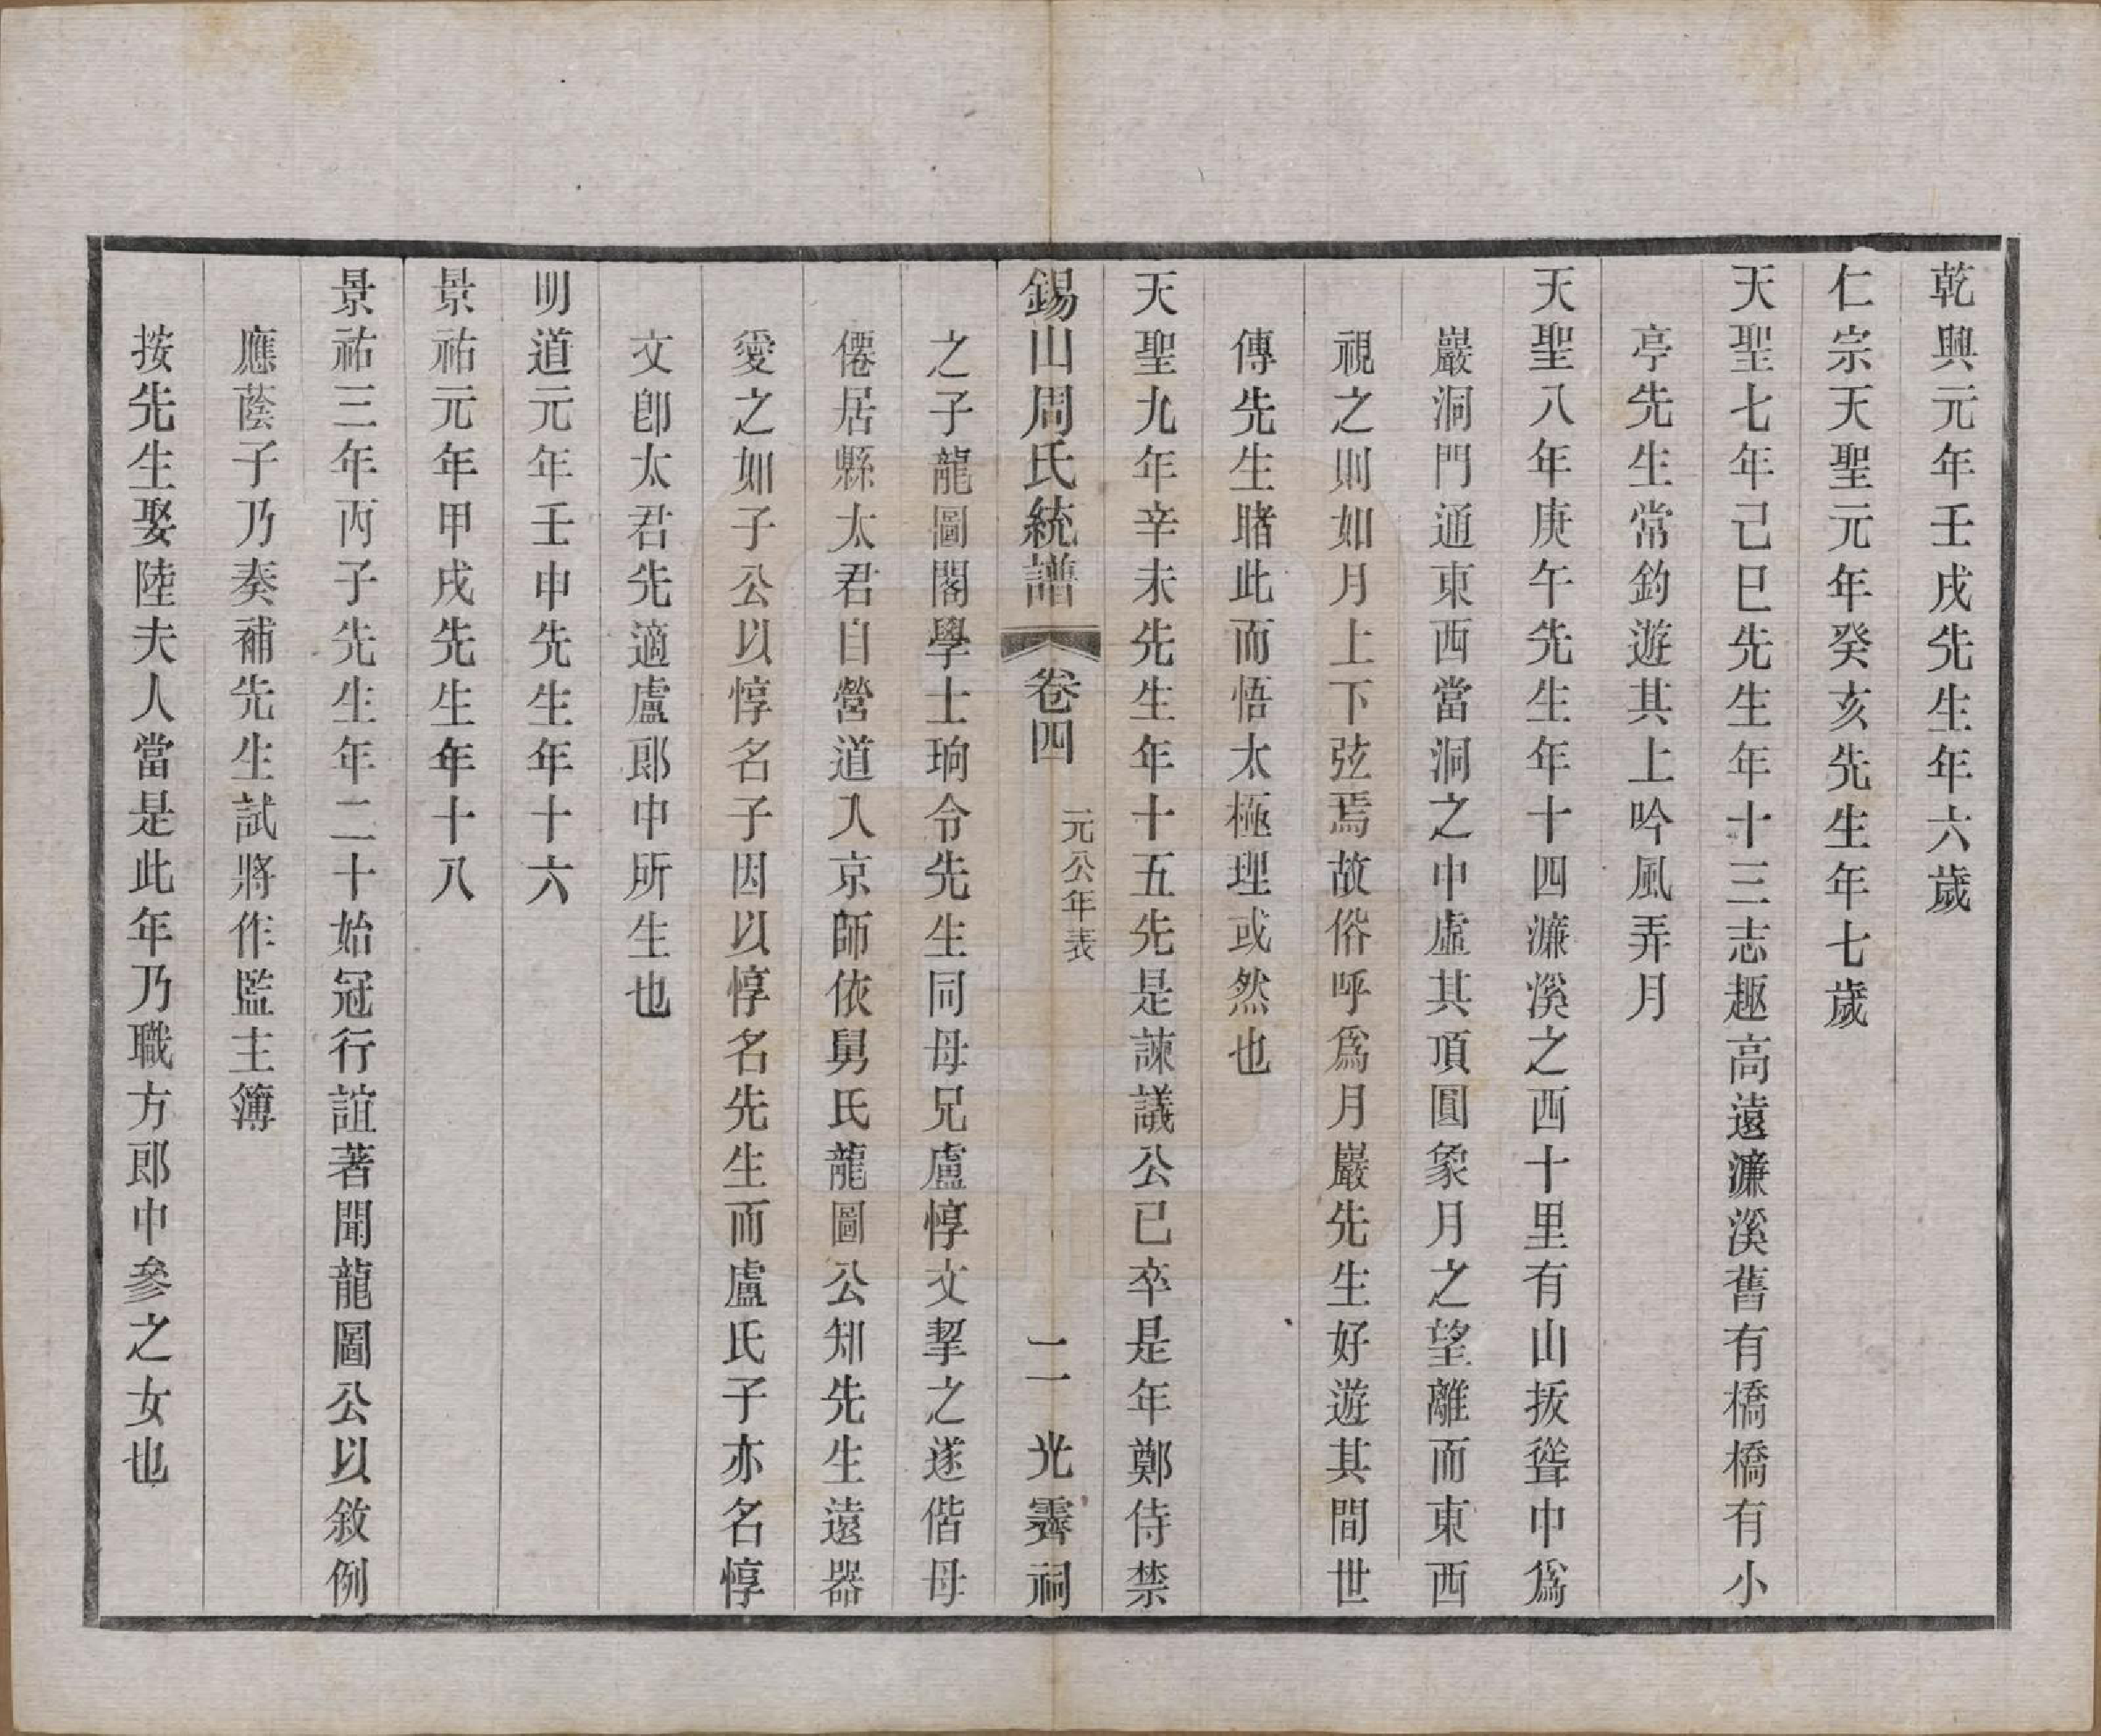 乾興元年壬戌先生年六歲
仁宗天聖元年癸亥先生年七歲
天聖七年己巳先生年十三志趣高遠濂溪舊有橋橋有小
亭先生常釣遊其上吟風弄月
天聖八年庚午先生年十四濂溪之西十里有山拔聳中爲
巖洞門通東西當洞之中虛其頂圓象月之望離而東西
視之則如月上下弦焉故俗呼爲月巖先生好遊其間世
傳先生睹此而悟太極理或然也
天聖九年辛未先生年十五先是諫議公已卒是年鄭侍禁
錫山周氏統譜
卷四
元公年表
二
光霽祠
之子龍圖閣學士珦令先生同母兄盧惇文挈之遂偕母
僊居縣太君自營道入京師依舅氏龍圖公知先生遠器
愛之如子公以惇名子因以惇名先生而盧氏子亦名惇
文卽太君先適盧郎中所生也
明道元年壬申先生年十六
景祐元年甲戌先生年十八
景祐三年丙子先生年二十始冠行誼著聞龍圖公以敘例
應蔭子乃奏補先生試將作監主簿
按先生娶陸夫人當是此年乃職方郎中參之女也